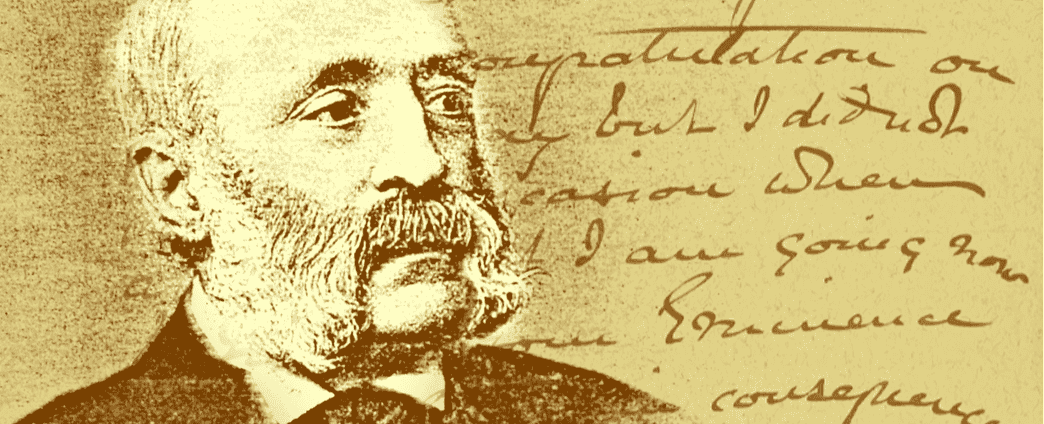 ongratulation on
but I did not
casion when
I am going now
our Eminence
consequenc